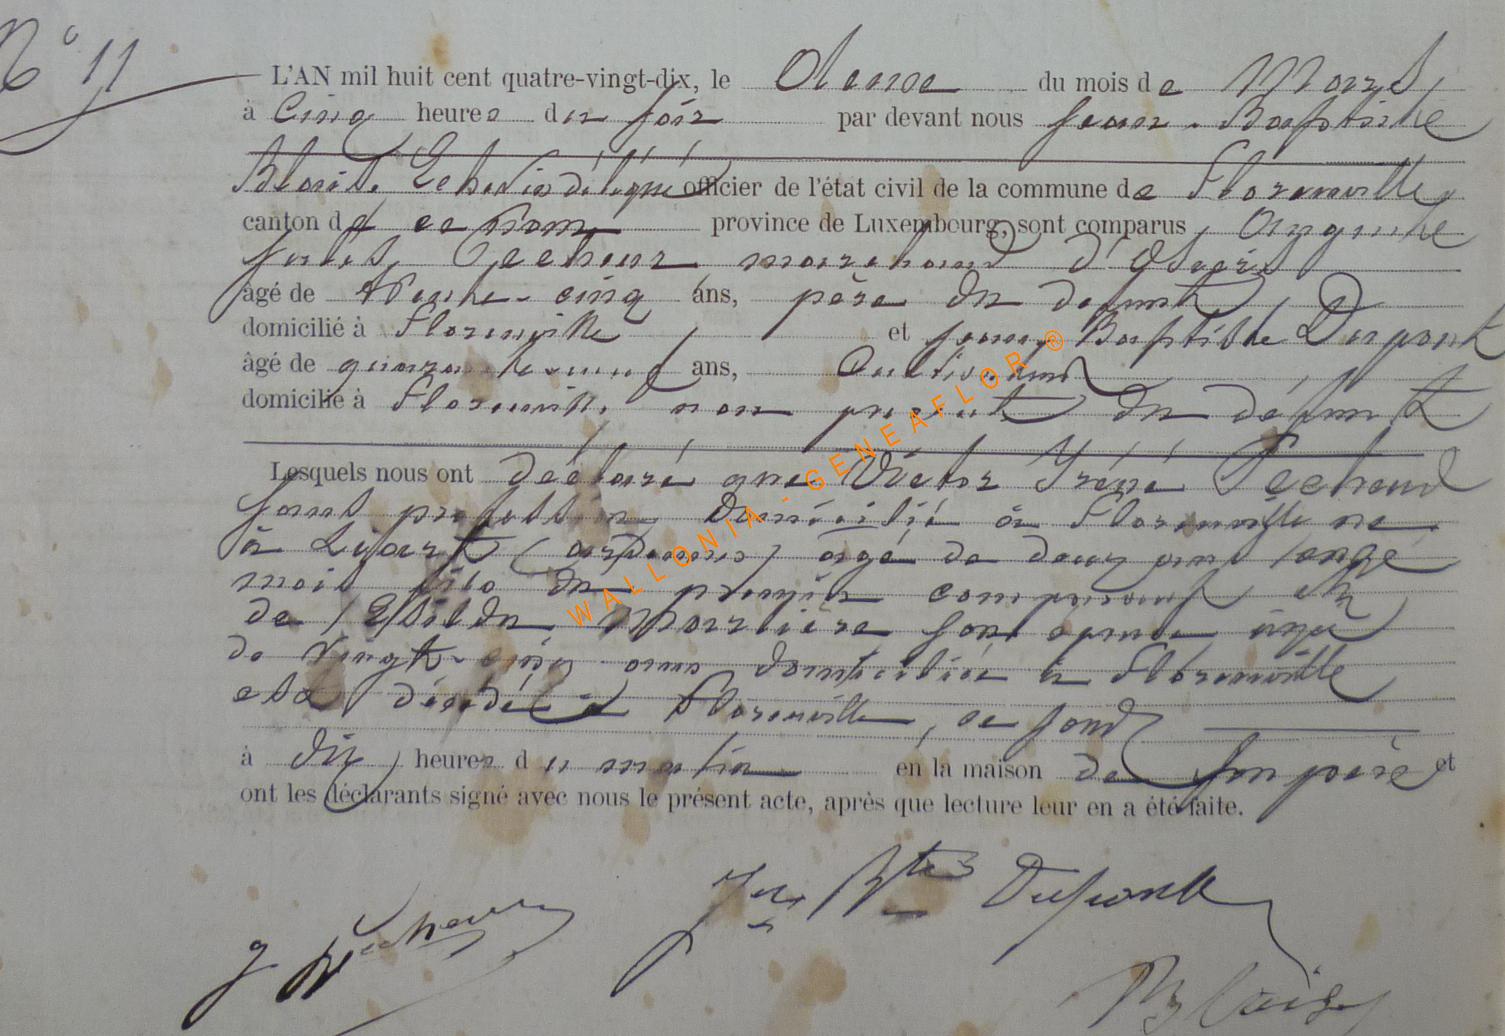 N° 11
L'AN mil huit cent quatre-vingt-dix, le Onze du mois de Mars
à Cinq heures du soir par devant nous Jean-Baptiste
Blaise Echevin délégué officier de l'état civil de la commune de Florenville
canton de ce nom province de Luxembourg, sont comparus Auguste
Jules Pecheur marchand d'Osier
âgé de trente-cinq ans, père du défunt
domicilié à Florenville et Jean Baptiste Dupont
âgé de quarante-neuf ans, Cultivateur
domicilié à Florenville non parent du défunt
Lesquels nous ont déclaré que Victor Iréné Pecheur
sans profession domicilié à Florenville né
à Liart (ardennes) âgé de deux ans onze
mois fils du premier comparant et
de Marlière son épouse âgée
de vingt-cinq ans domiciliée à Florenville
est décédé à Florenville, ce jour
à dix heures du matin en la maison de son père et
ont les déclarants signé avec nous le présent acte, après que lecture leur en a été faite.
J Pecheur
Jn Bte Dupont
Blaise
WALLONIA - GENEAFLOR ®